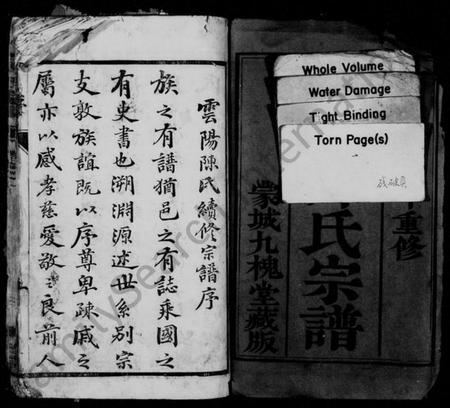 Whole Volume
Water Damage
Tight Binding
Torn Page(s)
重修
氏宗譜
蒙城九槐堂藏版
雲陽陳氏續修宗譜序
族之有譜猶邑之有誌乘國之
有史書也溯淵源述世系別宗
支敦族誼既以序尊卑疎戚之
屬亦以感孝慈愛敬之良前人